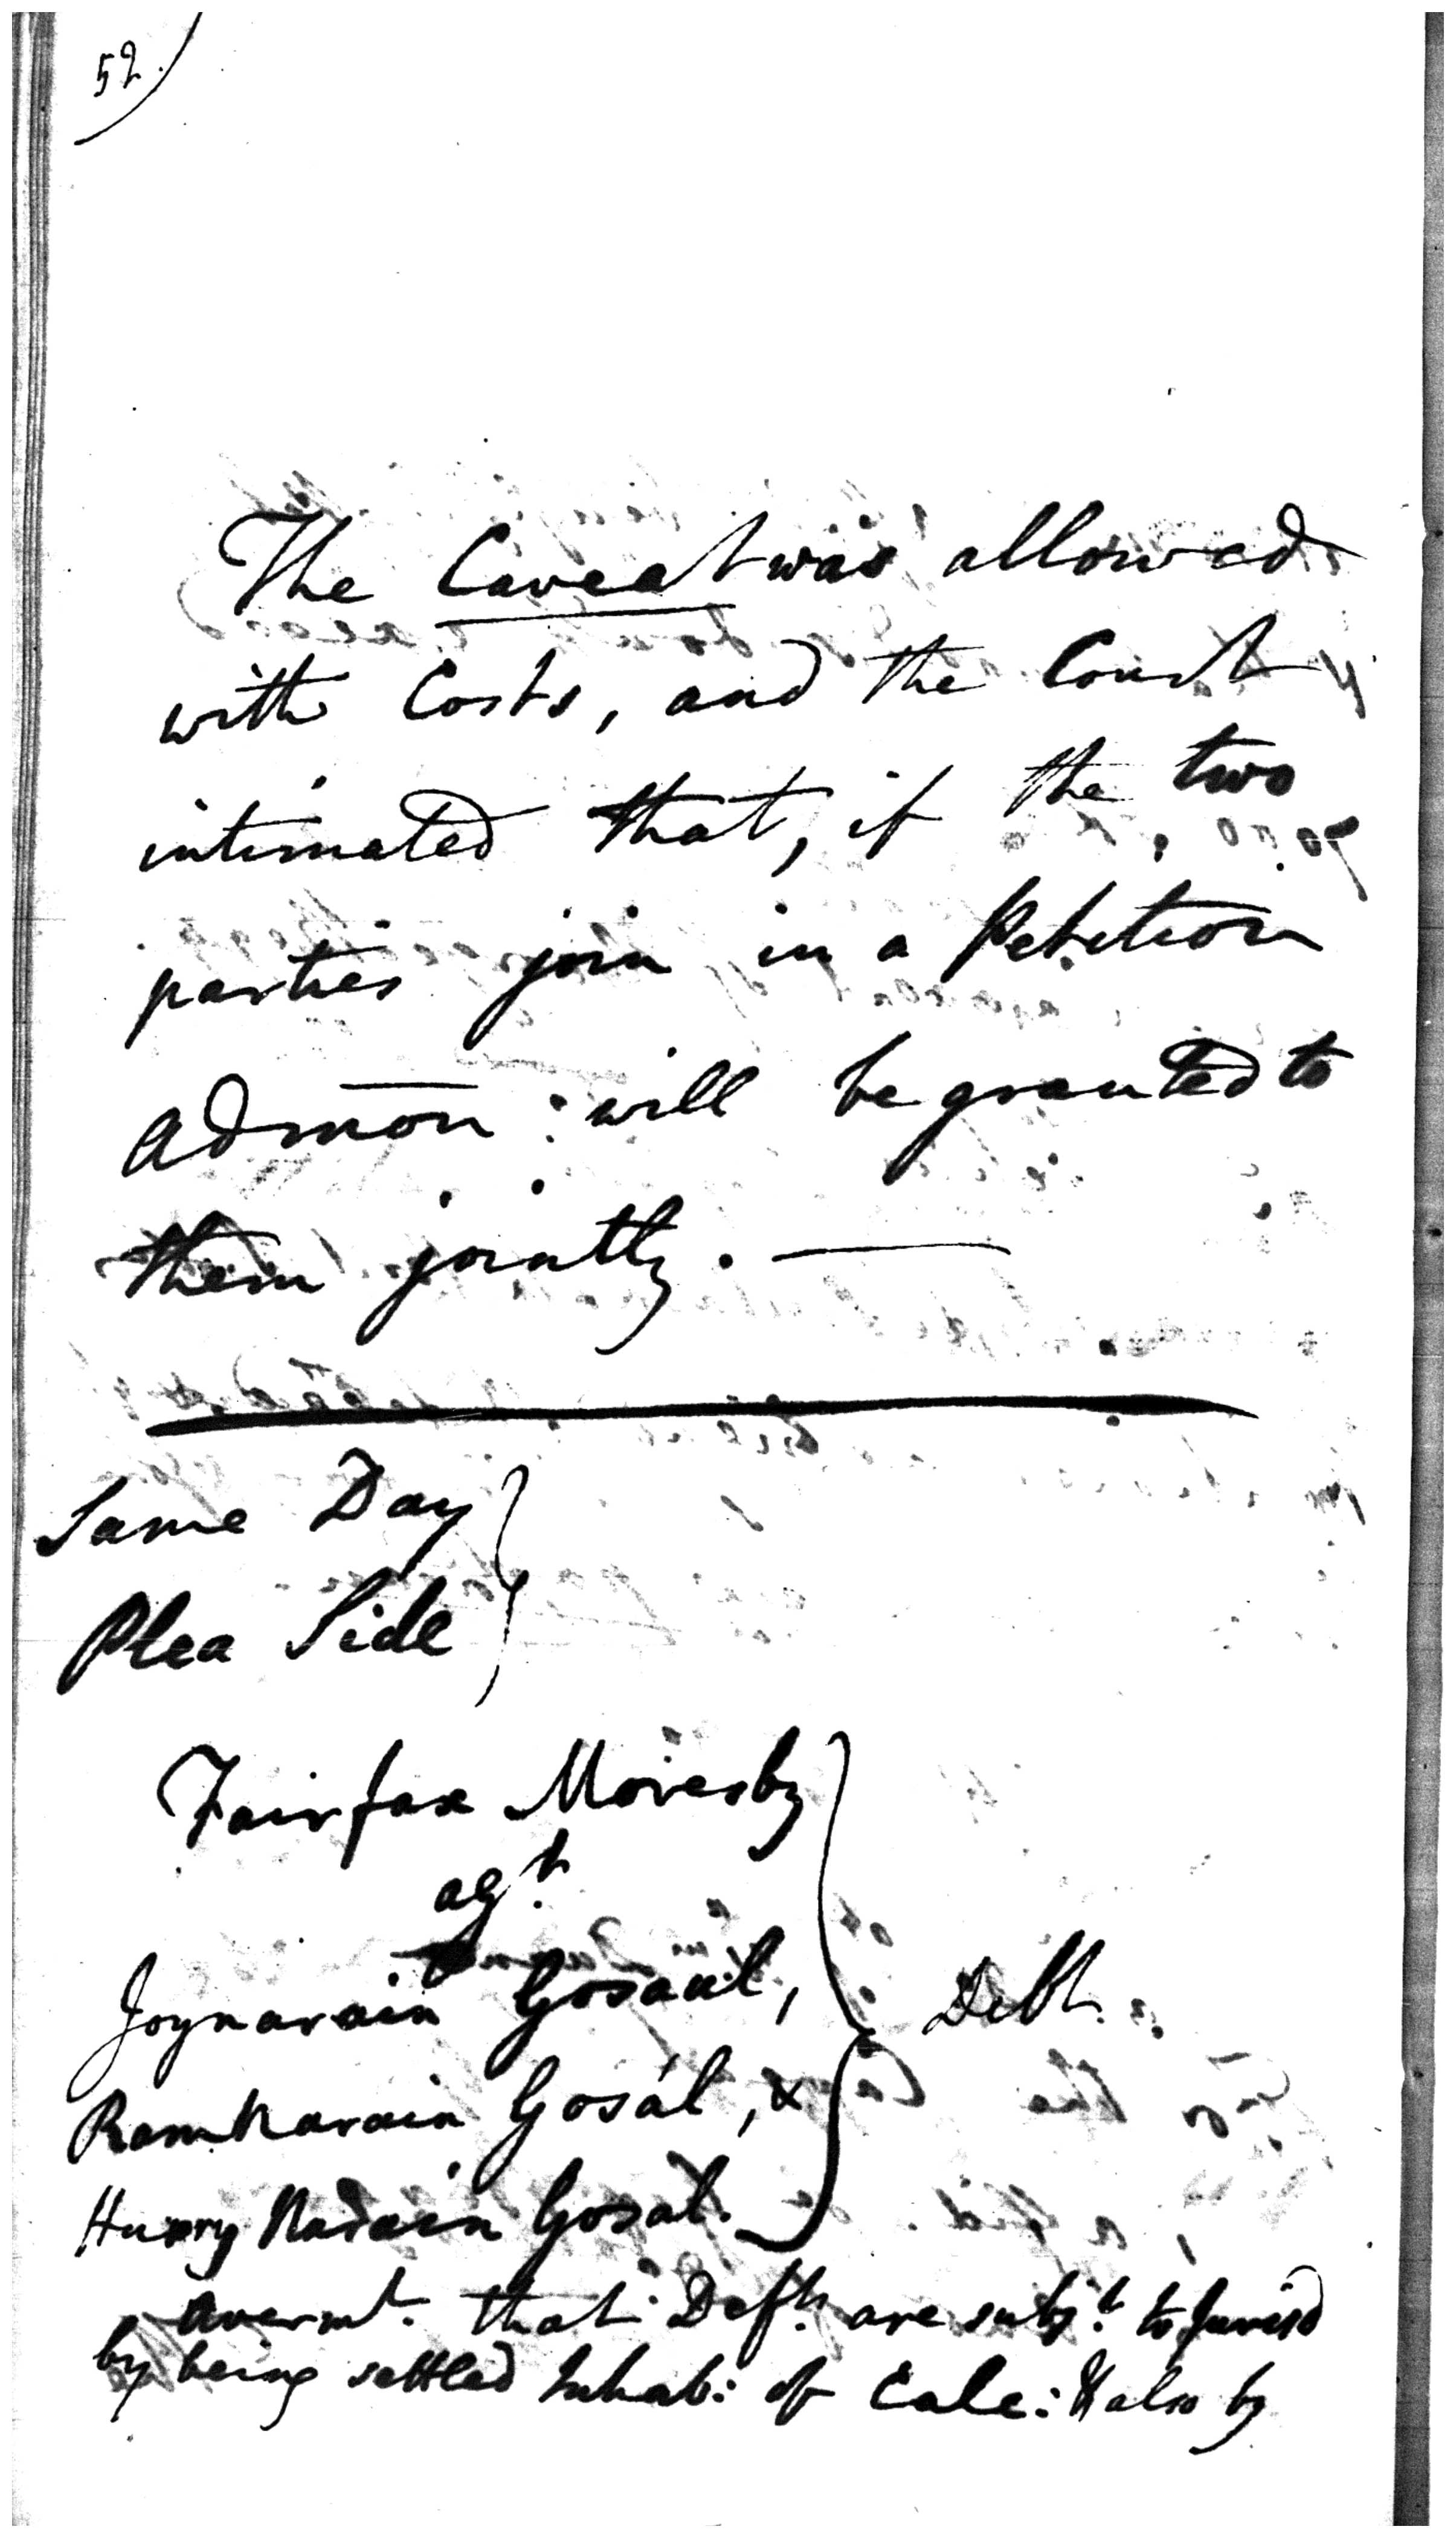 52.
The Caveat was allowed
with Costs, and the Court
intimated that, if the two
parties join in a Petition
Admōn: will be granted to
them jointly. —
Same Day
Plea Side
Fairfax Moresby
agt.
Joynarain Gosaul,
Debt.
Ramnarain Gosál, &
Hurry Narain Gosal.
Avermt. that Defts. are subjt. to Jurisd
by being settled Inhab: of Calc: & also by